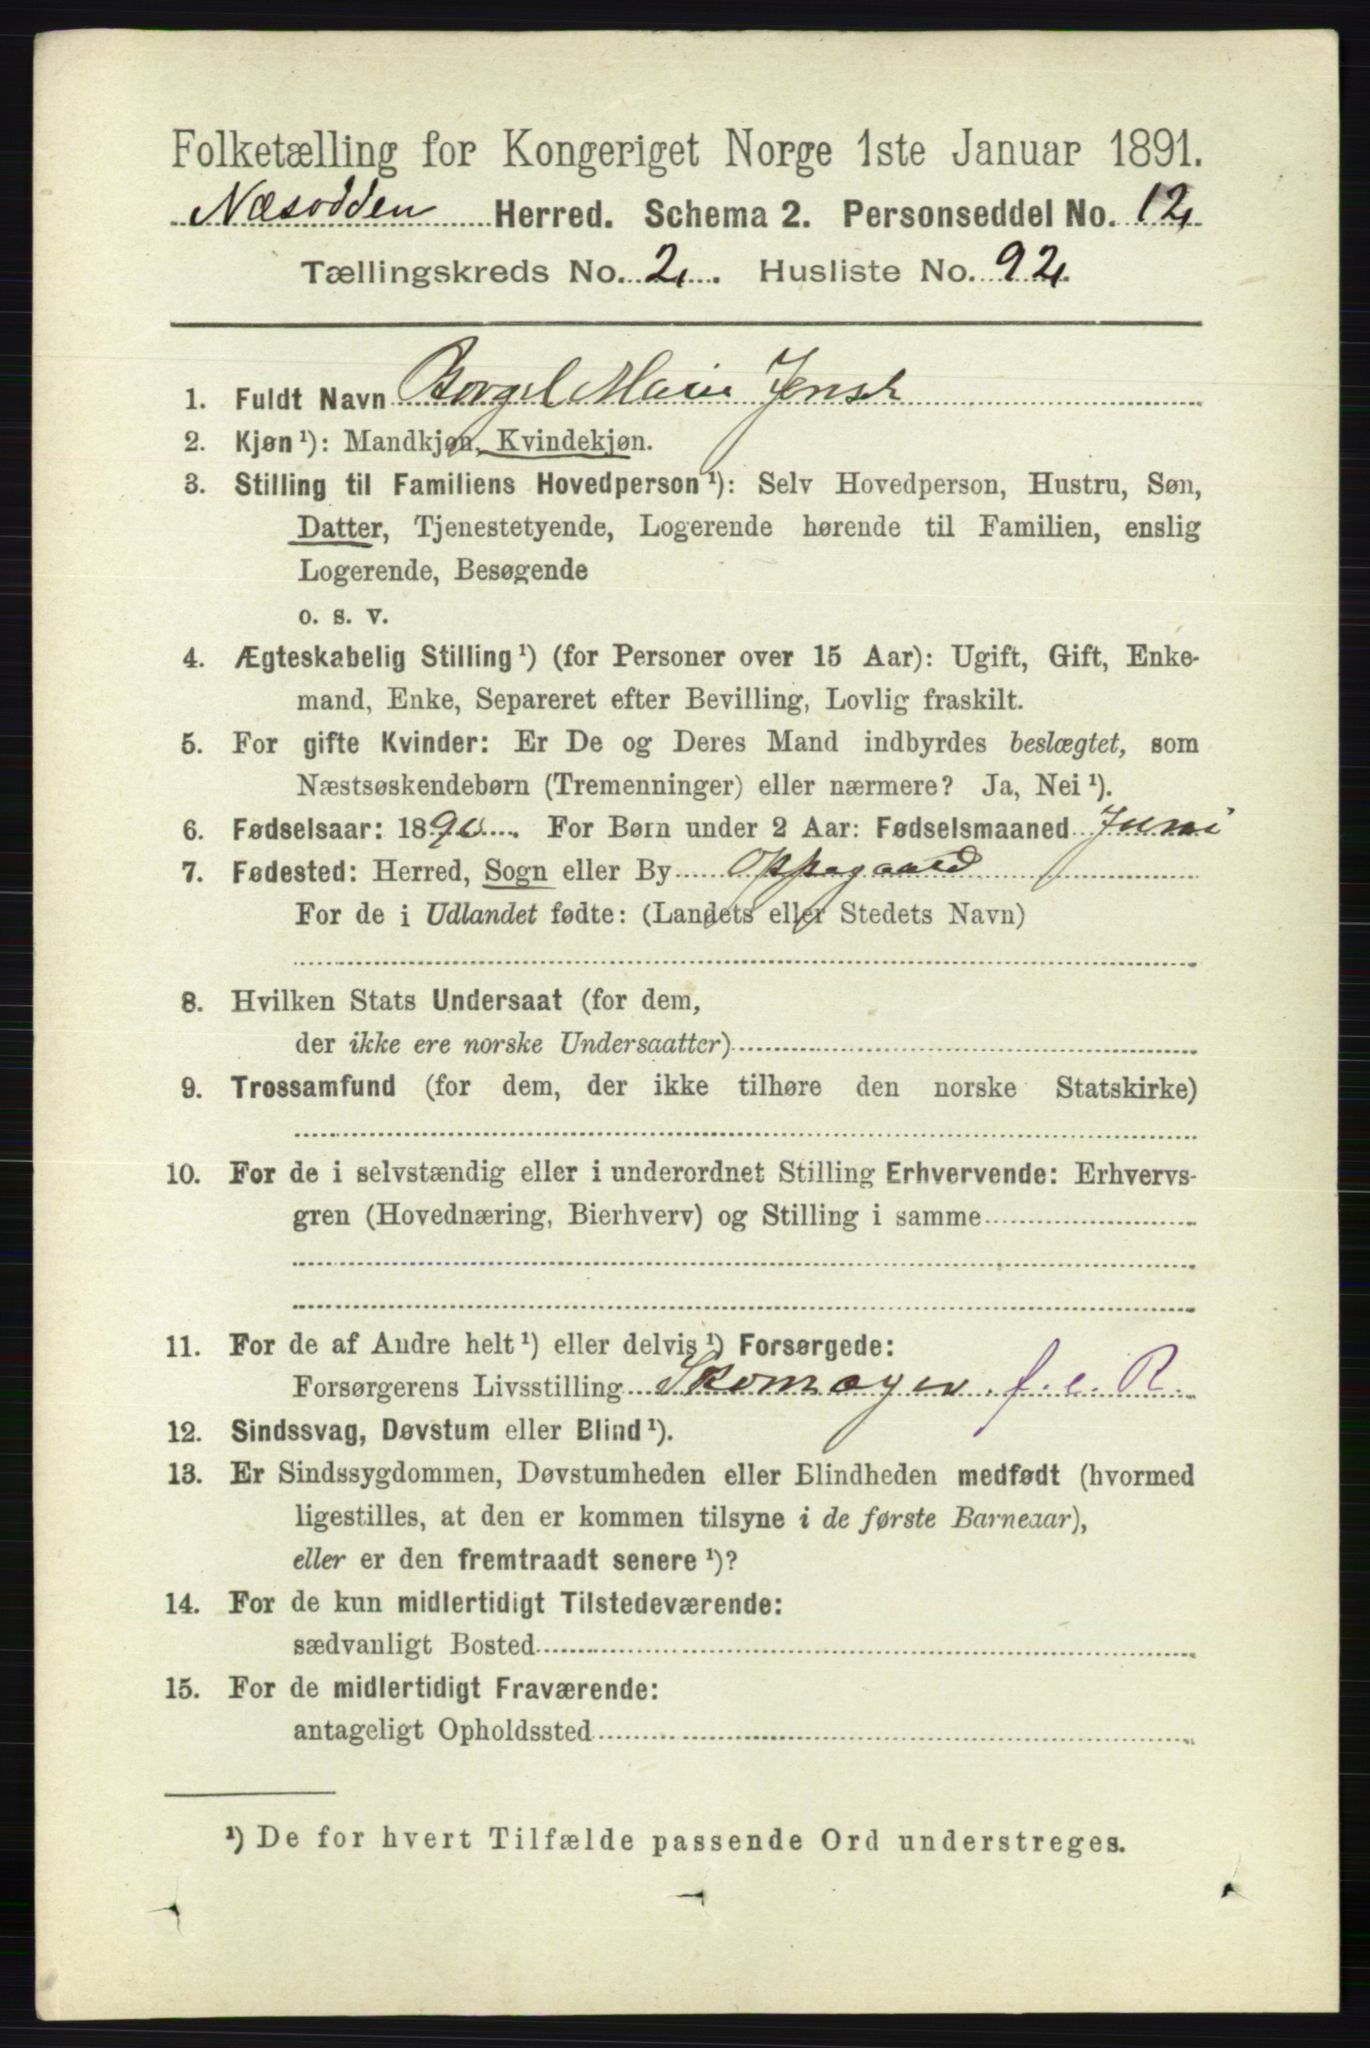 Folketælling for Kongeriget Norge 1ste Januar 1891.
Næsodden Herred. Schema 2. Personseddel No. 12
Tællingskreds No. 2. Husliste No. 92.
1. Fuldt Navn Borgel Marie Jensd
2. Kjøn¹): Mandkjøn, Kvindekjøn.
3. Stilling til Familiens Hovedperson¹): Selv Hovedperson, Hustru, Søn,
Datter, Tjenestetyende, Logerende hørende til Familien, enslig
Logerende, Besøgende
o. s. v.
4. Ægteskabelig Stilling¹) (for Personer over 15 Aar): Ugift, Gift, Enke-
mand, Enke, Separeret efter Bevilling, Lovlig fraskilt.
5. For gifte Kvinder: Er De og Deres Mand indbyrdes beslægtet, som
Næstsøskendebørn (Tremenninger) eller nærmere? Ja, Nei¹).
6. Fødselsaar: 1890. For Børn under 2 Aar: Fødselsmaaned Juni
7. Fødested: Herred, Sogn eller By Oppegaard
For de i Udlandet fødte: (Landets eller Stedets Navn)
8. Hvilken Stats Undersaat (for dem,
der ikke ere norske Undersaatter)
9. Trossamfund (for dem, der ikke tilhøre den norske Statskirke)
10. For de i selvstændig eller i underordnet Stilling Erhvervende: Erhvervs-
gren (Hovednæring, Bierhverv) og Stilling i samme
11. For de af Andre helt¹) eller delvis¹) Forsørgede:
Forsørgerens Livsstilling Skomager. f. e. R.
12. Sindssvag, Døvstum eller Blind¹).
13. Er Sindssygdommen, Døvstumheden eller Blindheden medfødt (hvormed
ligestilles, at den er kommen tilsyne i de første Barneaar),
eller er den fremtraadt senere¹)?
14. For de kun midlertidigt Tilstedeværende:
sædvanligt Bosted
15. For de midlertidigt Fraværende:
antageligt Opholdssted
¹) De for hvert Tilfælde passende Ord understreges.